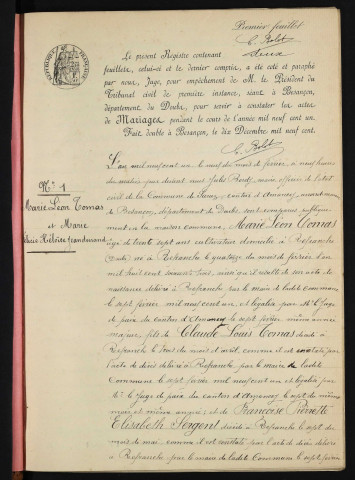 Premier feuillet
E. Bolot
Le présent Registre contenant deux
feuillets, celui-ci et le dernier compris, a été coté et paraphé
par nous, Juge, pour empêchement de M. le Président du
Tribunal civil de première instance, séant à Besançon,
département du Doubs, pour servir à constater les actes
de Mariages pendant le cours de l'année mil neuf cent un.
Fait double à Besançon, le dix Décembre mil neuf cent.
E. Bolot
N° 1
Marie Léon Tornas
et Marie
Héloïse
L'an mil neuf cent un le neuf du mois de février, à neuf heures
du matin par devant nous Jules maire officier de l'état civil
de la Commune de canton d'Amancey, arrondissement
de Besançon, département du Doubs, sont comparus publiquement
en la maison commune, Marie Léon Tornas
âgé de trente sept ans cultivateur domicilié à Refranche
(Doubs) né à Refranche le quatorze du mois de février l'an
mil huit cent soixante trois, ainsi qu'il résulte de son acte de
naissance délivré à Refranche par le maire de ladite commune
le sept février mil neuf cent un et légalisé par Mr le Juge
de paix du canton d'Amancey le sept février même année
majeur, fils de Claude Louis Tornas décédé à
Refranche le trois du mois d'avril comme il est constaté par
l'acte de décès délivré à Refranche par le maire de ladite
Commune le sept février mil neuf cent un et légalisé par
Mr le Juge de paix du canton d'Amancey le sept du même
mois et même année; et de Françoise Pierrette
Elisabeth Sergent décédée à Refranche le sept du
mois de mai, comme il est constaté par l'acte de décès délivré
à Refranche par le maire de ladite Commune le sept février